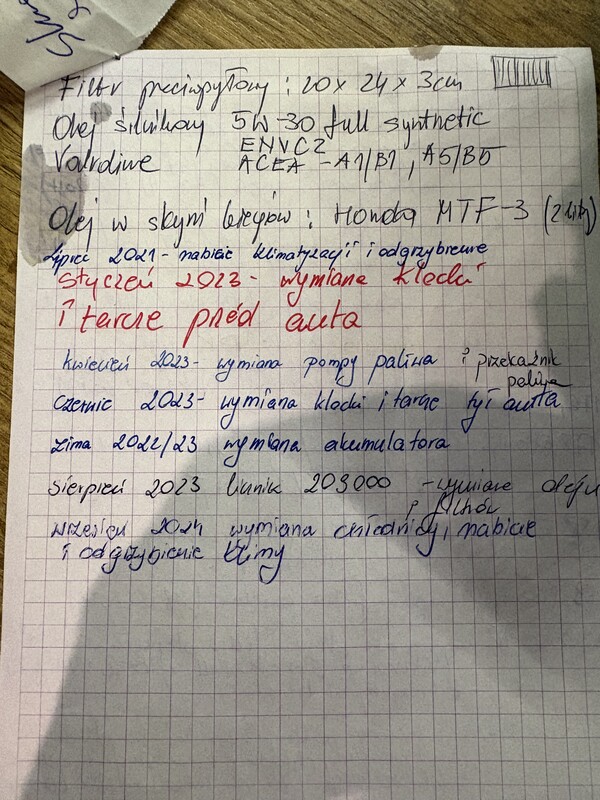 Filtr preciwpyłowy : 20 x 24 x 3cm
Olej silnikowy 5W-30 full synthetic
ENVC2
Valvoline ACEA - A1/B1, A5/B5
Olej w skrzyni biegów : Honda MTF-3 (2 litry)
Lipiec 2021 - nabicie klimatyzacji i odgrzybienie
Styczeń 2023 - wymiana klocki
i tarcze przód auta
kwiecień 2023 - wymiana pompy paliwa i przekaźnik
paliwa
Czerwiec 2023 - wymiana klocki i tarcze tył auta
zima 2022/23 wymiana akumulatora
sierpień 2023 licznik 203000 - wymiana oleju
i filtrów
wrzesień 2024 wymiana chłodnicy, nabicie
i odgrzybienie klimy